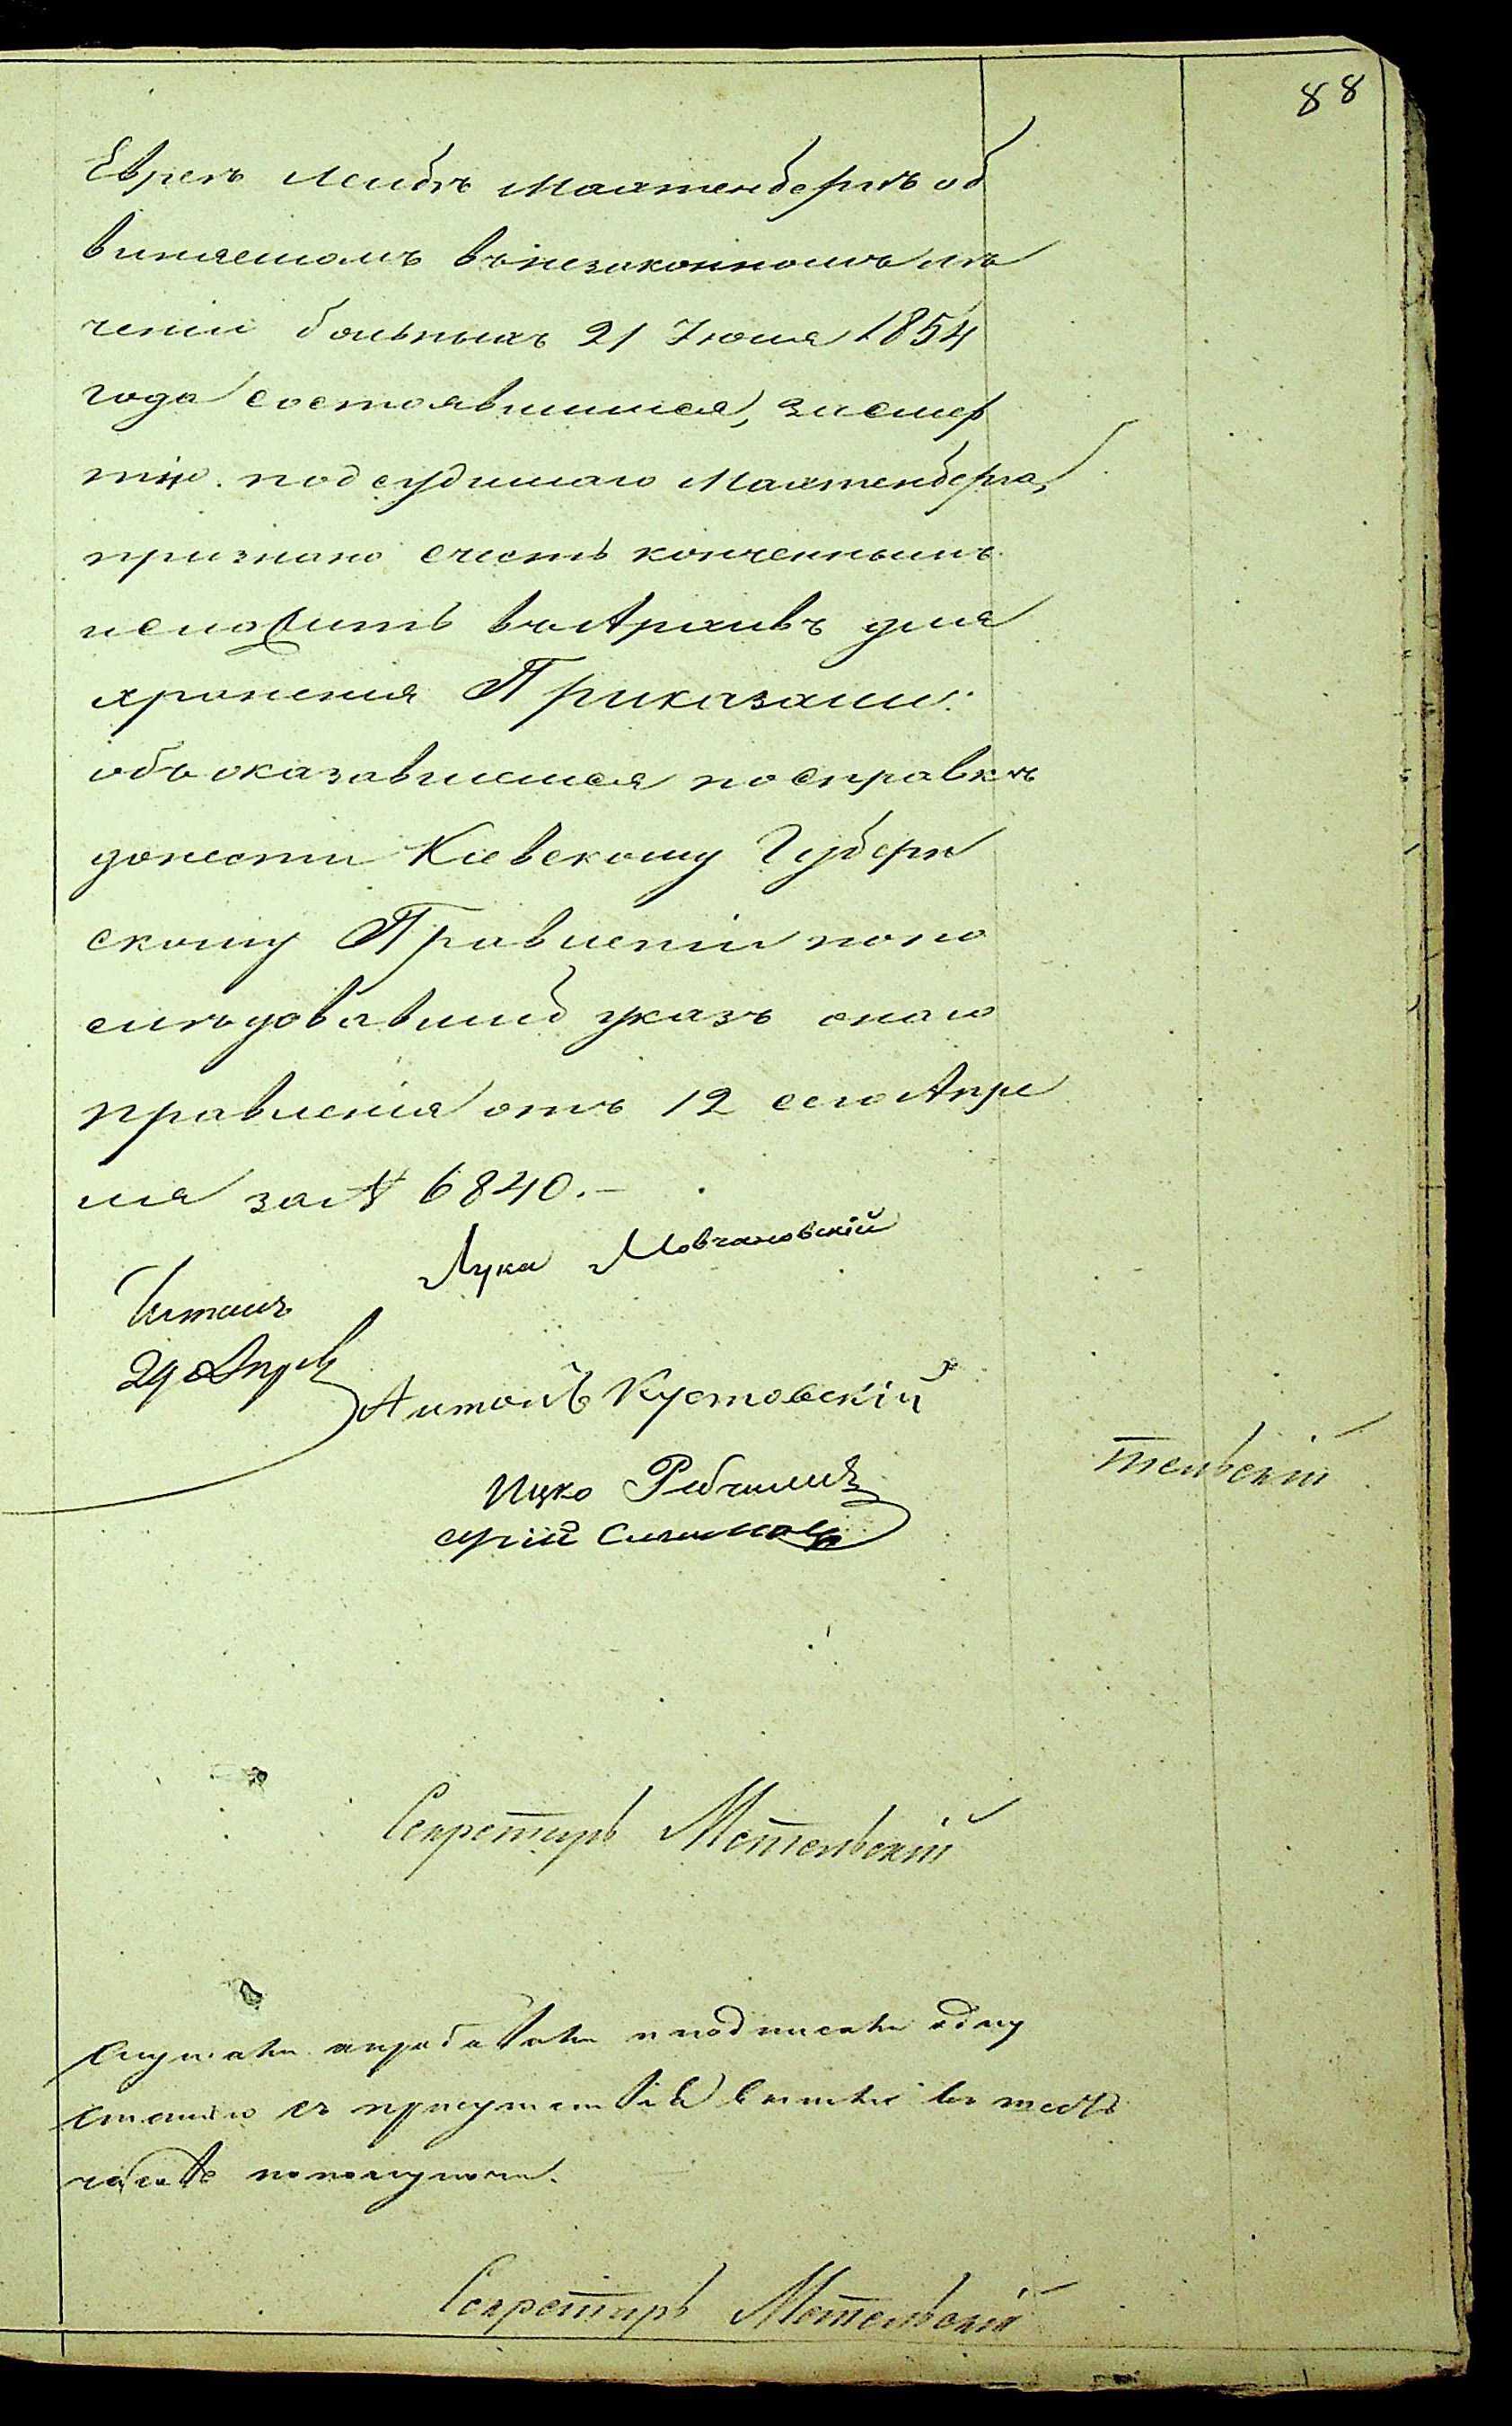 88
Евреѣ Лейбѣ Махтенбергѣ об
виняемомъ въ незаконномъ лѣ
ченіи больныхъ 21 Іюня 1854
года состоявшимся, за смер
тію подсудимаго Махтенберга,
признано счесть конченнымъ
и сложить въ Архивъ для
храненія Приказали:
объ оказавшемся по справкѣ
донести Кіевскому Губерн
скому Правленію на по
слѣдовавшій указъ онаго
правленія отъ 12 сего Апре
ля за № 6840.—
Лука Мовчановскій
Читалъ
Антонъ Кустовскій
тельскій
Ицко
Секретарь Метельскій
Слушали и подписали
часовъ пополуночи.
Секретарь Метельскій